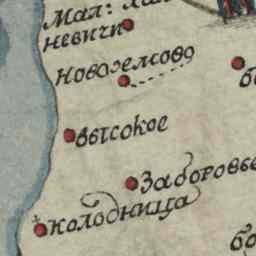 Мал:
невичи
Новоземово
высокое
Заборовье
колодница
бо